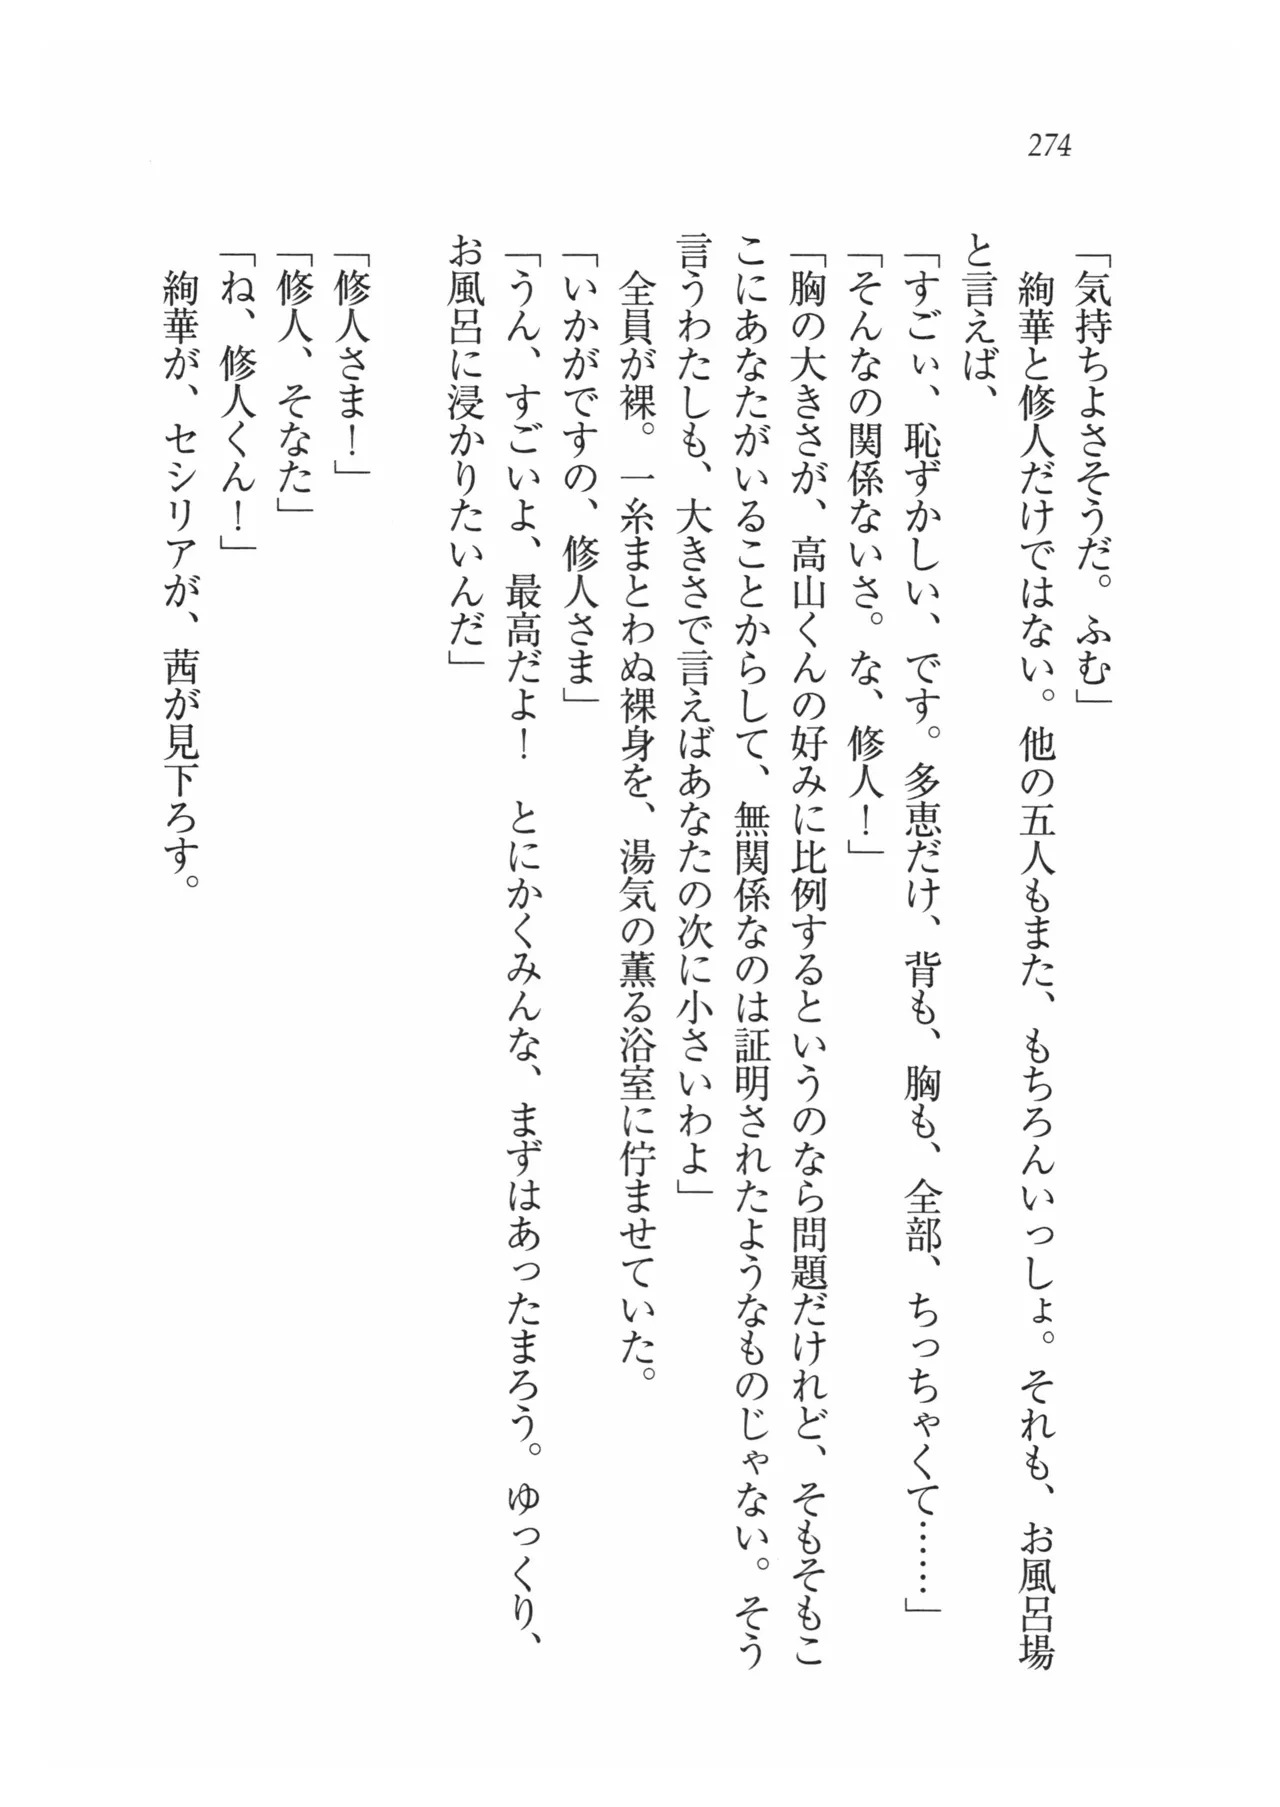 274
「気持ちよさそうだ。ふむ」
　絢華と修人だけではない。他の五人もまた、もちろんいっしょ。それも、お風呂場
と言えば、
「すごぃ、恥ずかしい、です。多恵だけ、背も、胸も、全部、ちっちゃくて……」
「そんなの関係ないさ。な、修人！」
「胸の大きさが、高山くんの好みに比例するというのなら問題だけれど、そもそもこ
こにあなたがいることからして、無関係なのは証明されたようなものじゃない。そう
言うわたしも、大きさで言えばあなたの次に小さいわよ」
　全員が裸。一糸まとわぬ裸身を、湯気の薫る浴室に佇ませていた。
「いかがですの、修人さま」
「うん、すごいよ、最高だよ！　とにかくみんな、まずはあったまろう。ゆっくり、
お風呂に浸かりたいんだ」
「修人さま！」
「修人、そなた」
「ね、修人くん！」
　絢華が、セシリアが、茜が見下ろす。